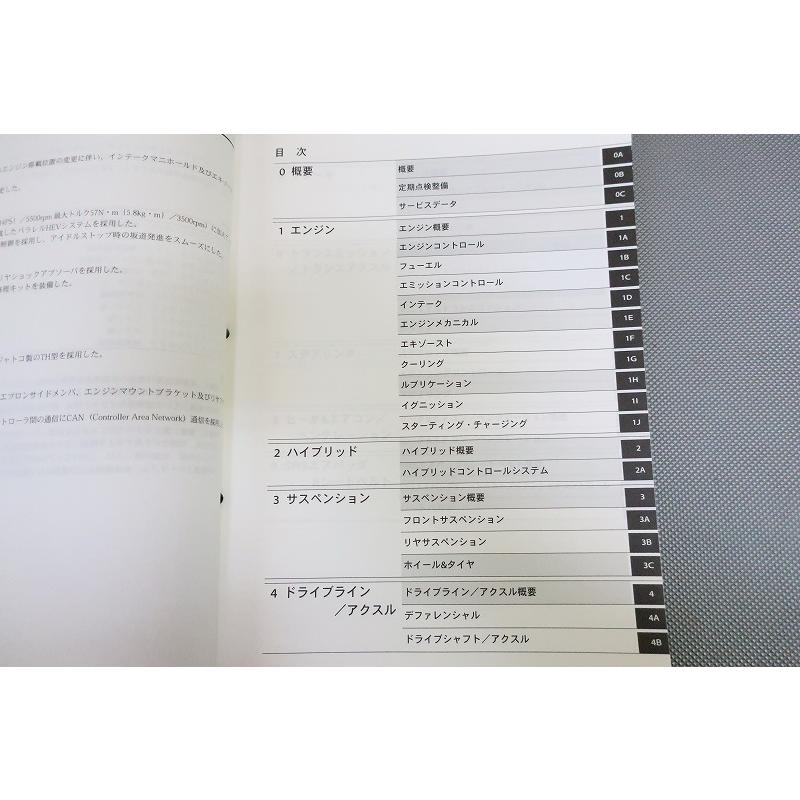 エンジン搭載位置の変更に伴い、インテークマニホールド及びエキゾ
更した。
5500rpm 最大トルク57N・m（5.8kg・m）／3500rpm）に
したパラレルHEVシステムを採用した。
制御を採用し、アイドルストップ時の坂道発進をスムーズにした。
リヤショックアブソーバを採用した。
修理キットを装備した。
ジャトコ製のTH型を採用した。
エプロンサイドメンバ、エンジンマウントブラケット及びリヤ
トローラ間の通信にCAN（Controller Area Network）通信を採用し
目 次
0 概要
概要 0A
定期点検整備 0B
サービスデータ 0C
1 エンジン
エンジン概要 1
エンジンコントロール 1A
フューエル 1B
エミッションコントロール 1C
インテーク 1D
エンジンメカニカル 1E
エキゾースト 1F
クーリング 1G
ルブリケーション 1H
イグニッション 1I
スターティング・チャージング 1J
2 ハイブリッド
ハイブリッド概要 2
ハイブリッドコントロールシステム 2A
3 サスペンション
サスペンション概要 3
フロントサスペンション 3A
リヤサスペンション 3B
ホイール&タイヤ 3C
4 ドライブライン
／アクスル
ドライブライン／アクスル概要 4
デファレンシャル 4A
ドライブシャフト／アクスル 4B